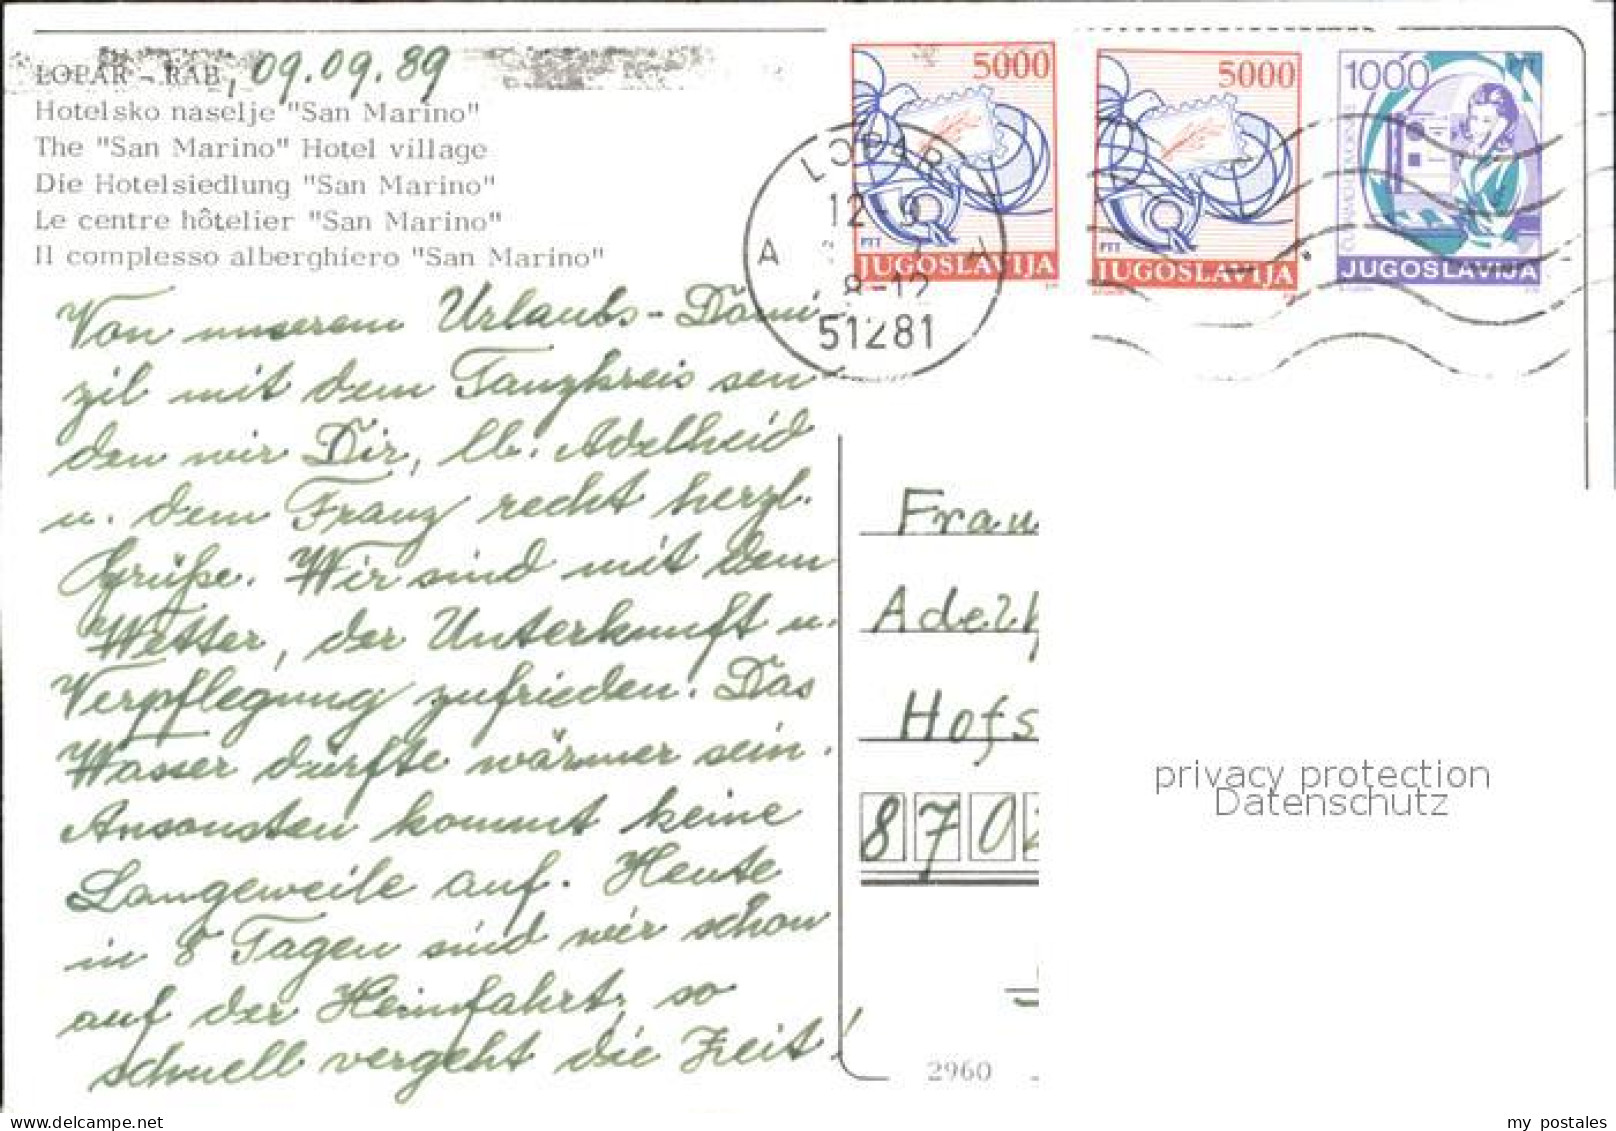 LOPAR - RAB, 09.09.89
Hotelsko naselje "San Marino"
The "San Marino" Hotel village
Die Hotelsiedlung "San Marino"
Le centre hôtelier "San Marino"
Il complesso alberghiero "San Marino"
Von unserem Urlaubs-Domi
zil mit dem Tanzkreis sen
den wir Dir, lb. Adelheid
u. dem Franz recht herzl.
Grüße. Wir sind mit dem
Wetter, der Unterkunft u.
Verpflegung zufrieden. Das
Wasser dürfte wärmer sein.
Ansonsten kommt keine
Langeweile auf. Heute
in 8 Tagen sind wir schon
auf der Heimfahrt, so
schnell vergeht die Zeit!
5000
PTT
JUGOSLAVIJA
5000
PTT
JUGOSLAVIJA
1000
PTT
JUGOSLAVIJA
LOPAR
12-9
A
8-12
51281
Frau
Adelh
Hofs
870
2960
privacy protection
Datenschutz
www.delcampe.net
my postales